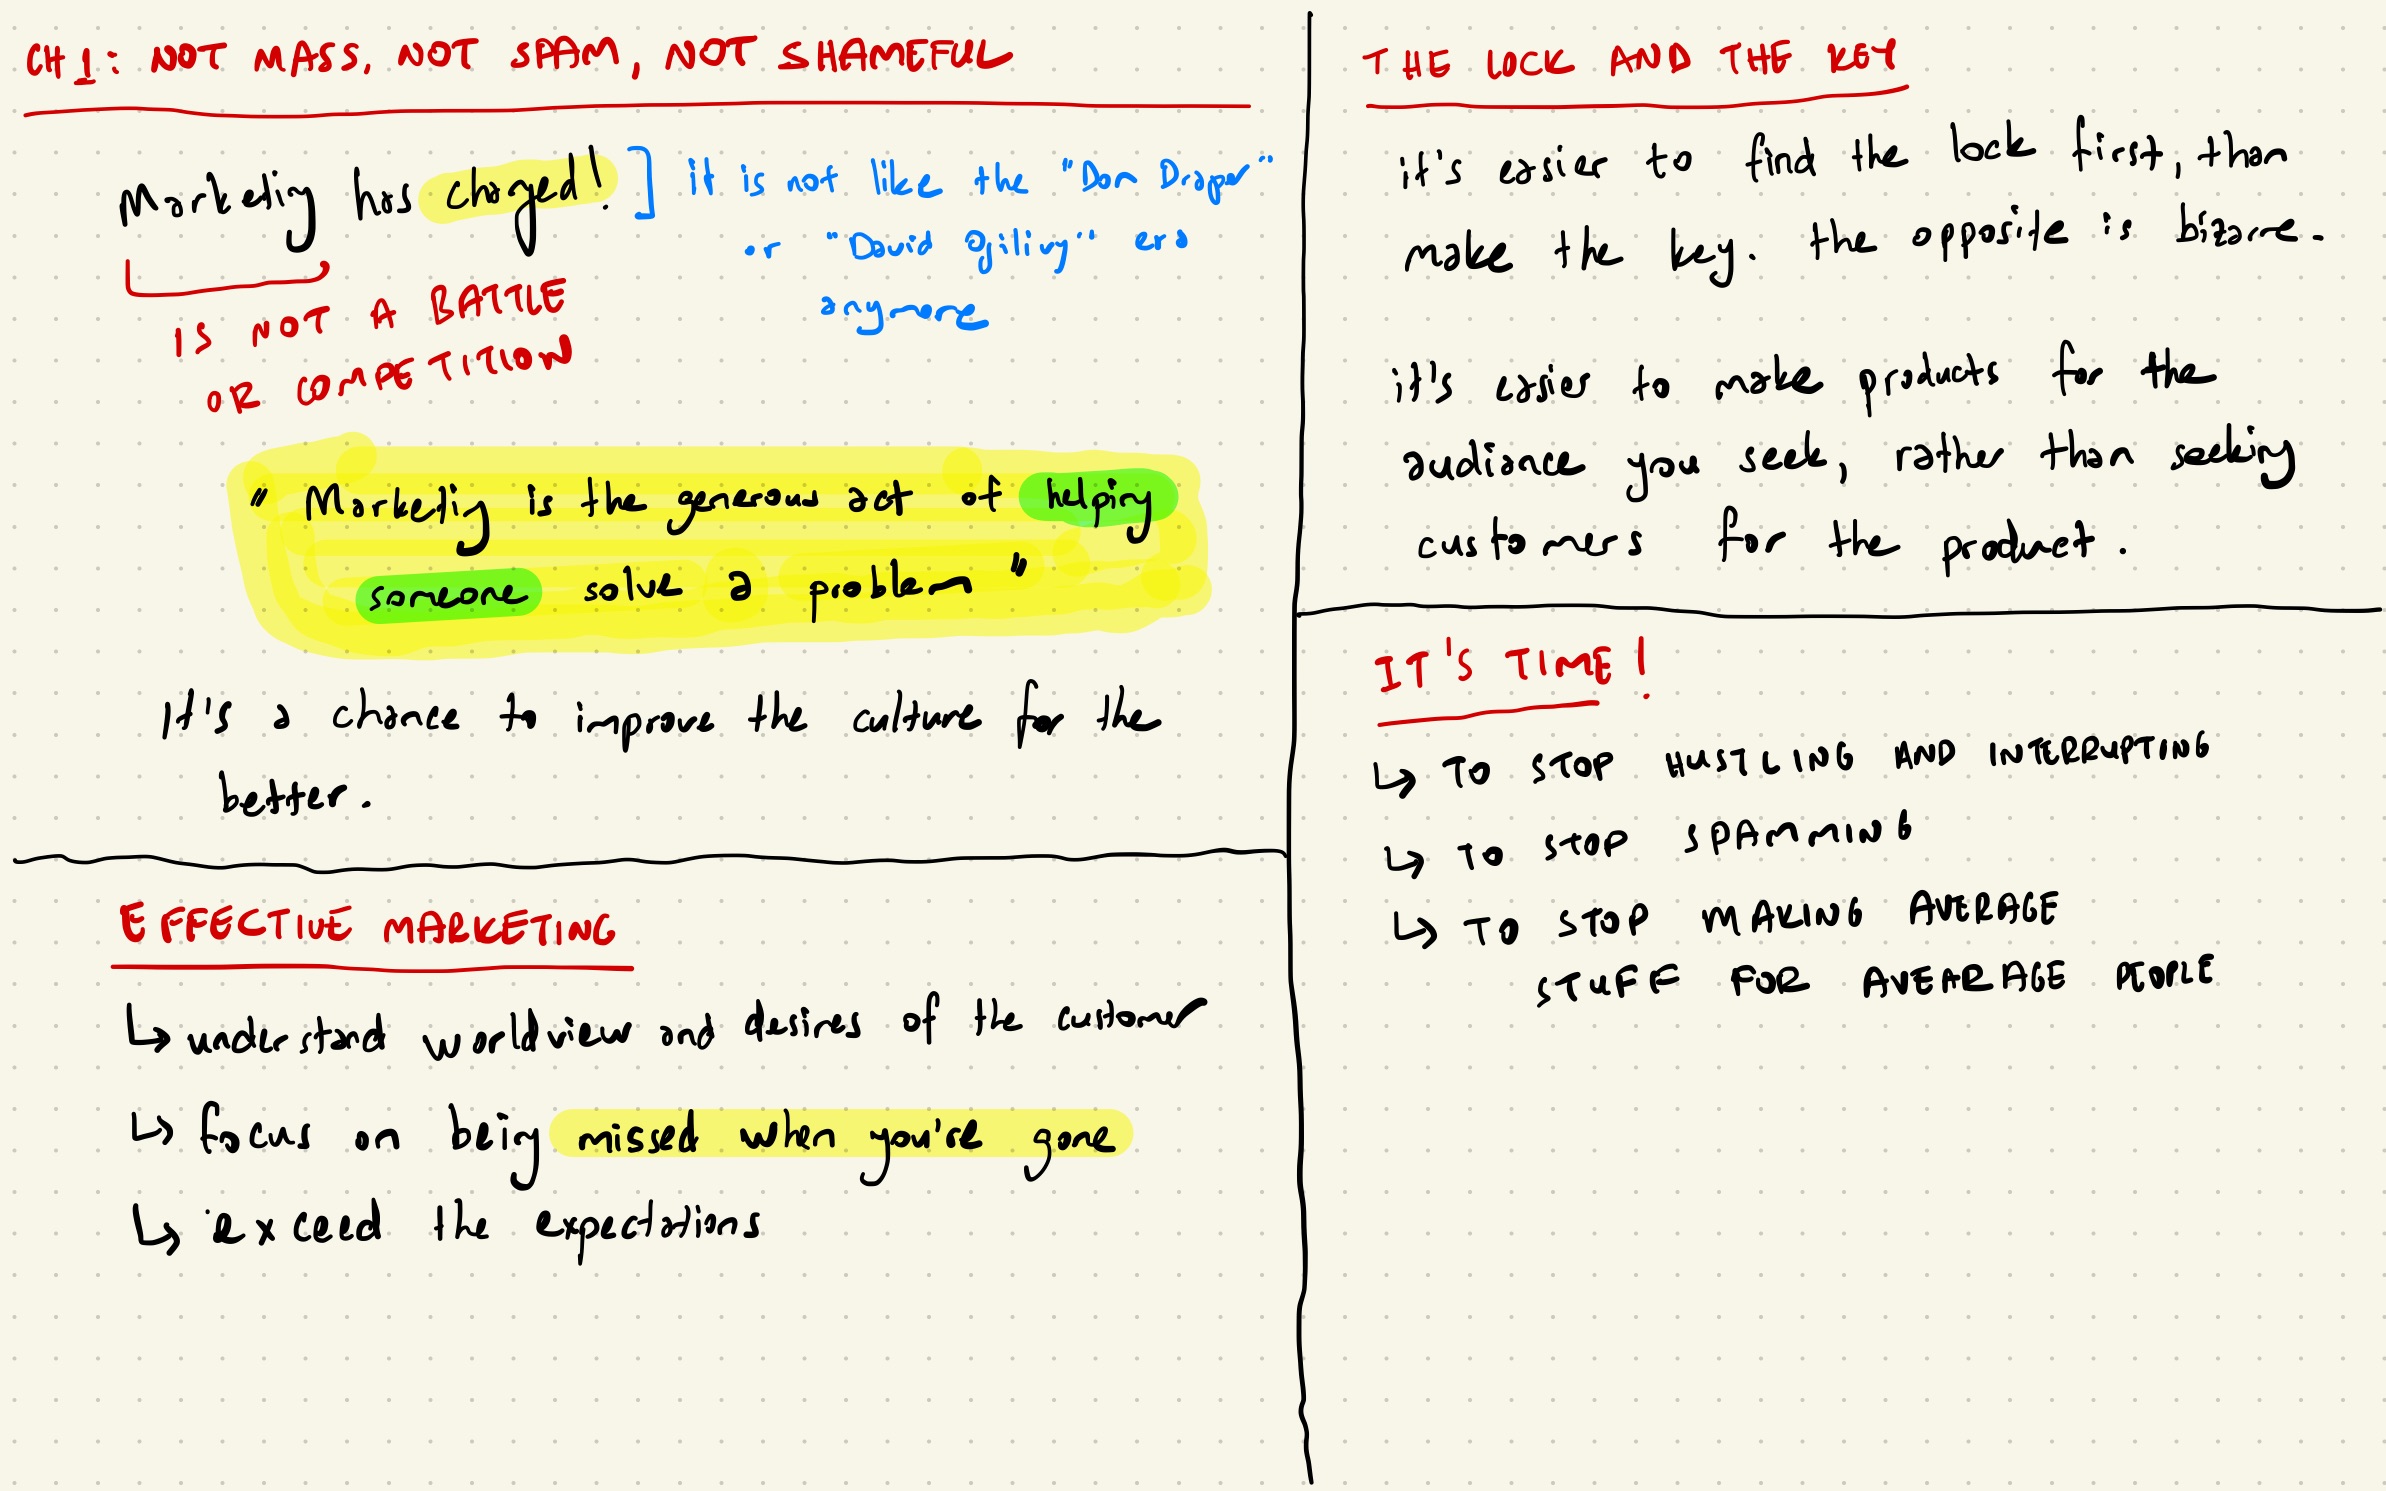 CH 1: NOT MASS, NOT SPAM, NOT SHAMEFUL
Marketing has changed!
it is not like the "Don Draper"
or "David Ogilivy" era
anymore
IS NOT A BATTLE
OR COMPETITION
" Marketing is the generous act of helping
someone solve a problem "
It's a chance to improve the culture for the
better.
EFFECTIVE MARKETING
↳ understand worldview and desires of the customer
↳ focus on being missed when you're gone
↳ exceed the expectations
THE LOCK AND THE KEY
it's easier to find the lock first, than
make the key. the opposite is bizarre.
it's easier to make products for the
audiance you seek, rather than seeking
customers for the product.
IT'S TIME!
↳ TO STOP HUSTLING AND INTERRUPTING
↳ TO STOP SPAMMING
↳ TO STOP MAKING AVERAGE
STUFF FOR AVEARAGE PEOPLE